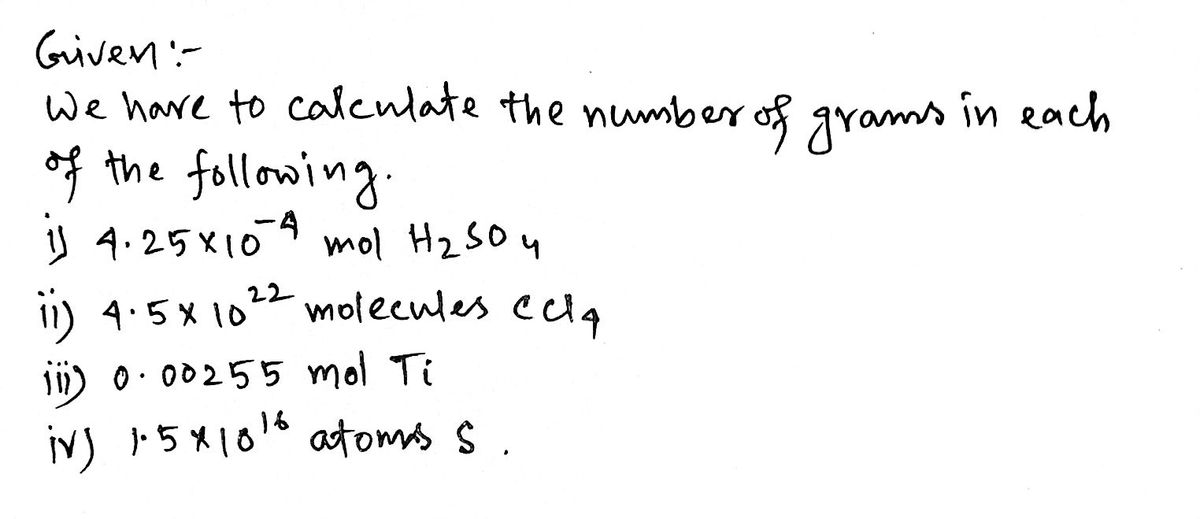 Given :-
We have to calculate the number of grams in each
of the following.
i) 4.25×10⁻⁴ mol H₂SO₄
ii) 4.5 × 10²² molecules CCl₄
iii) 0.00255 mol Ti
iv) 1.5×10¹⁶ atoms S .